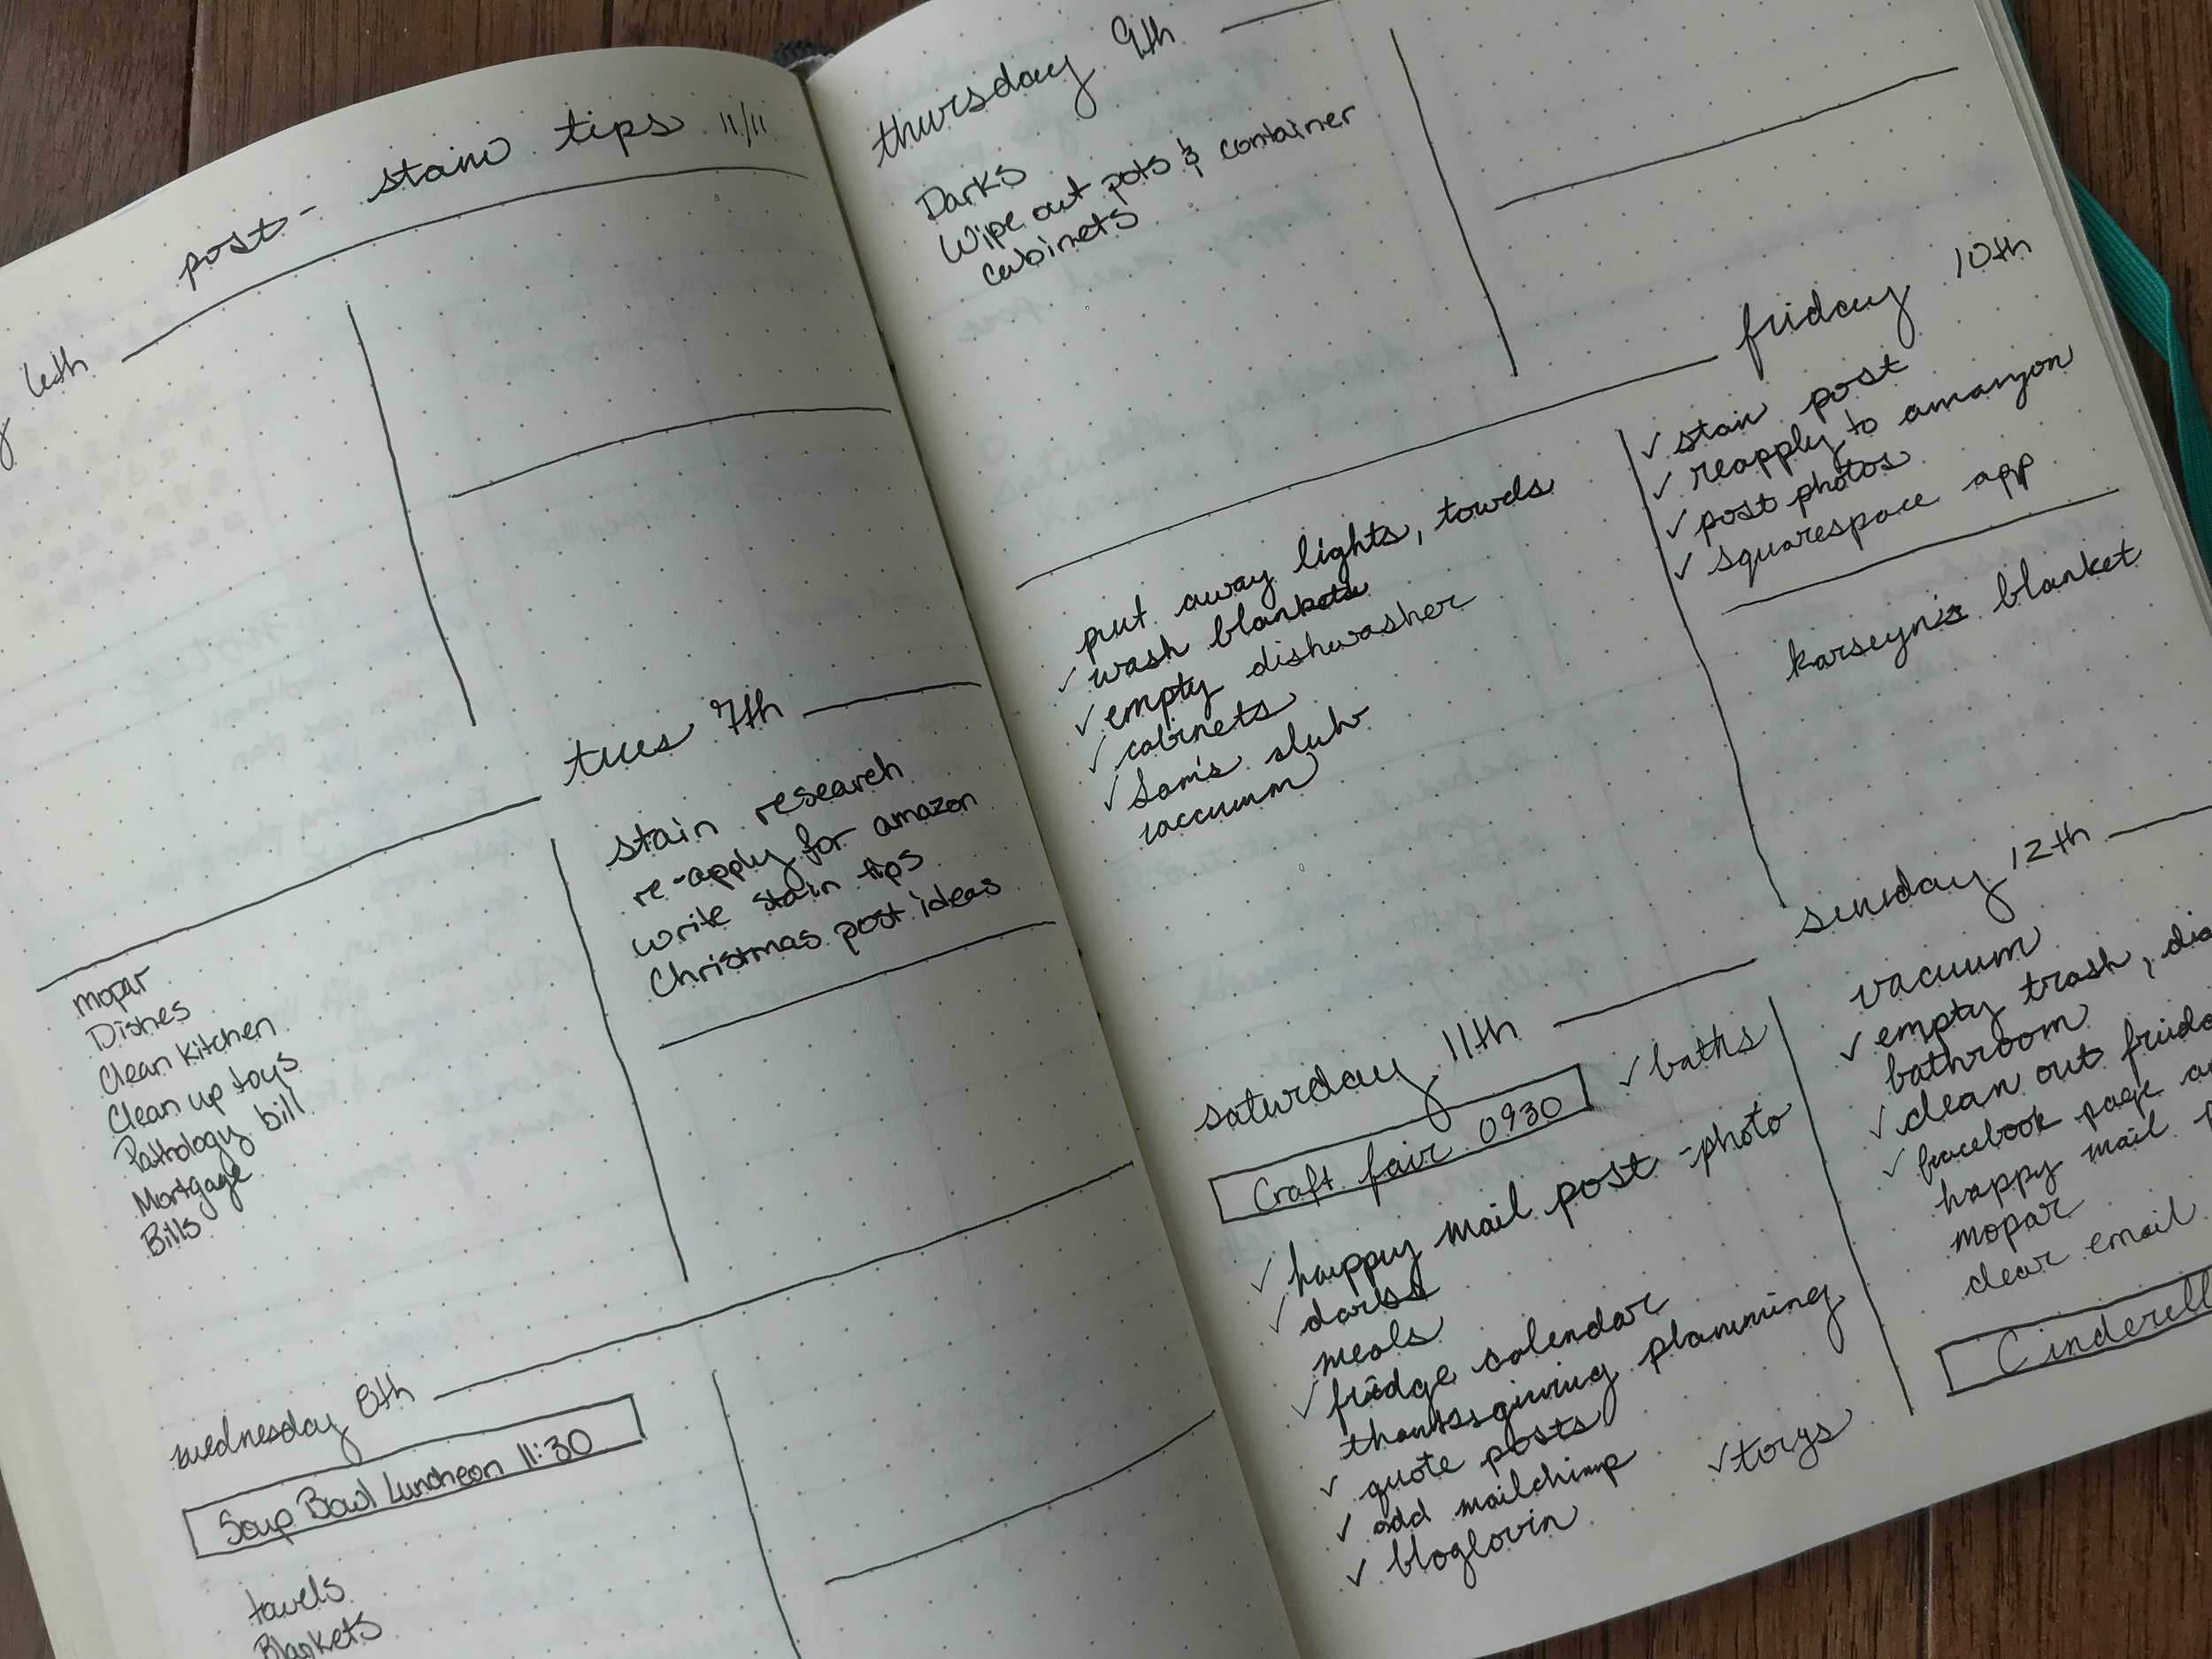 post- stain tips 11/11
6th
tues 7th
stain research
re-apply for amazon
write stain tips
Christmas post ideas
mopar
Dishes
Clean Kitchen
Clean up toys
Pathology bill
Mortgage
Bills
wednesday 8th
Soup Bowl Luncheon 11:30
towels
Blankets
thursday 9th
Darks
Wipe out pots & container
cabinets
friday 10th
✓ stain post
✓ reapply to amazon
✓ post photos
✓ squarespace app
karseyn's blanket
put away lights, towels
✓ wash blankets
✓ empty dishwasher
✓ cabinets
✓ Sam's club
vaccuum
saturday 11th
✓ baths
Craft fair 0930
✓ happy mail post - photo
✓ darks
meals
✓ fridge calendar
thanksgiving planning
✓ quote posts
✓ add mailchimp
✓ toys
✓ bloglovin
sunday 12th
vacuum
✓ empty trash,
bathroom
✓ clean out
✓ facebook page
happy mail
mopar
clear email